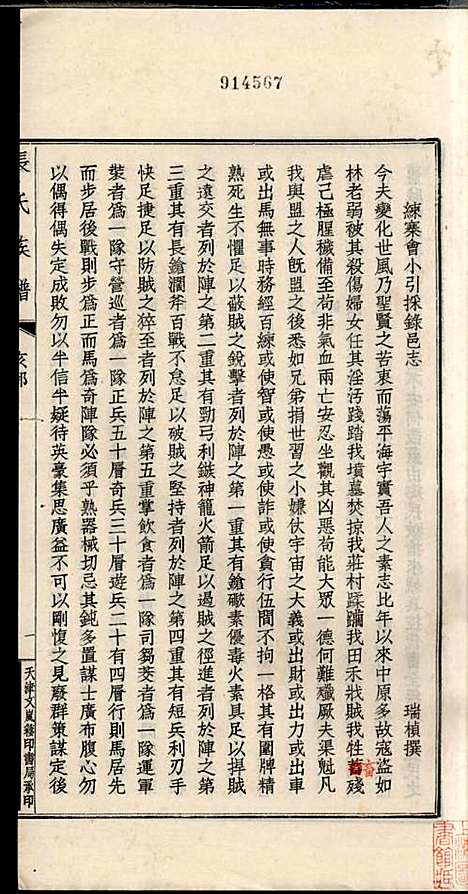 914567
練寨會小引採錄邑志
瑞楨撰
今夫變化世風乃聖賢之苦衷而蕩平海宇實吾人之素志比年以來中原多故寇盜如
林老弱被其殺傷婦女任其淫污踐踏我墳墓焚掠我莊村蹂躪我田禾戕賊我牲畜殘
虐已極腥穢備至苟非氣血兩亡安忍坐觀其凶惡苟能大眾一德何難殲厥夫渠魁凡
我與盟之人既盟之後恕如兄弟捐世習之小嫌伏宇宙之大義或出財或出力或出車
或出馬無事時務經百練或使智或使愚或使詐或使貪行伍間不拘一格其有團牌精
熟死生不懼足以蔽賊之銳擊者列於陣之第一重其有鎗礮素優毒火素具足以捍賊
之遠交者列於陣之第二重其有勁弓利鏃神龍火箭足以遏賊之徑進者列於陣之第
三重其有長鎗濶斧百戰不怠足以破賊之堅持者列於陣之第四重其有短兵利刃手
快足捷足以防賊之猝至者列於陣之第五重掌飲食者為一隊司芻茭者為一隊運軍
裝者為一隊守營巡者為一隊正兵五十層奇兵三十層遊兵二十有四層行則馬居先
而步居後戰則步為正而馬為奇陣隊必須乎熟器械切忌其鈍多置謀士廣布腹心勿
以偶得偶失定成敗勿以半信半疑待英豪集思廣益不可以剛愎之見廢群策謀定後
張氏族譜
亥部
一
天津文嵐簃印書局承印
畜